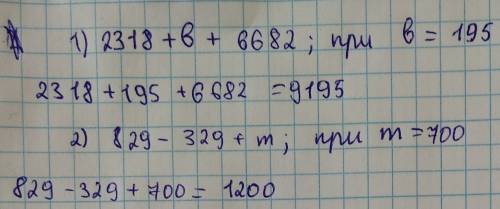 1) 2318 + в + 6682 ; при в = 195
2318 + 195 + 6682 = 9195
2) 829 - 329 + m ; при m = 700
829 - 329 + 700 = 1200